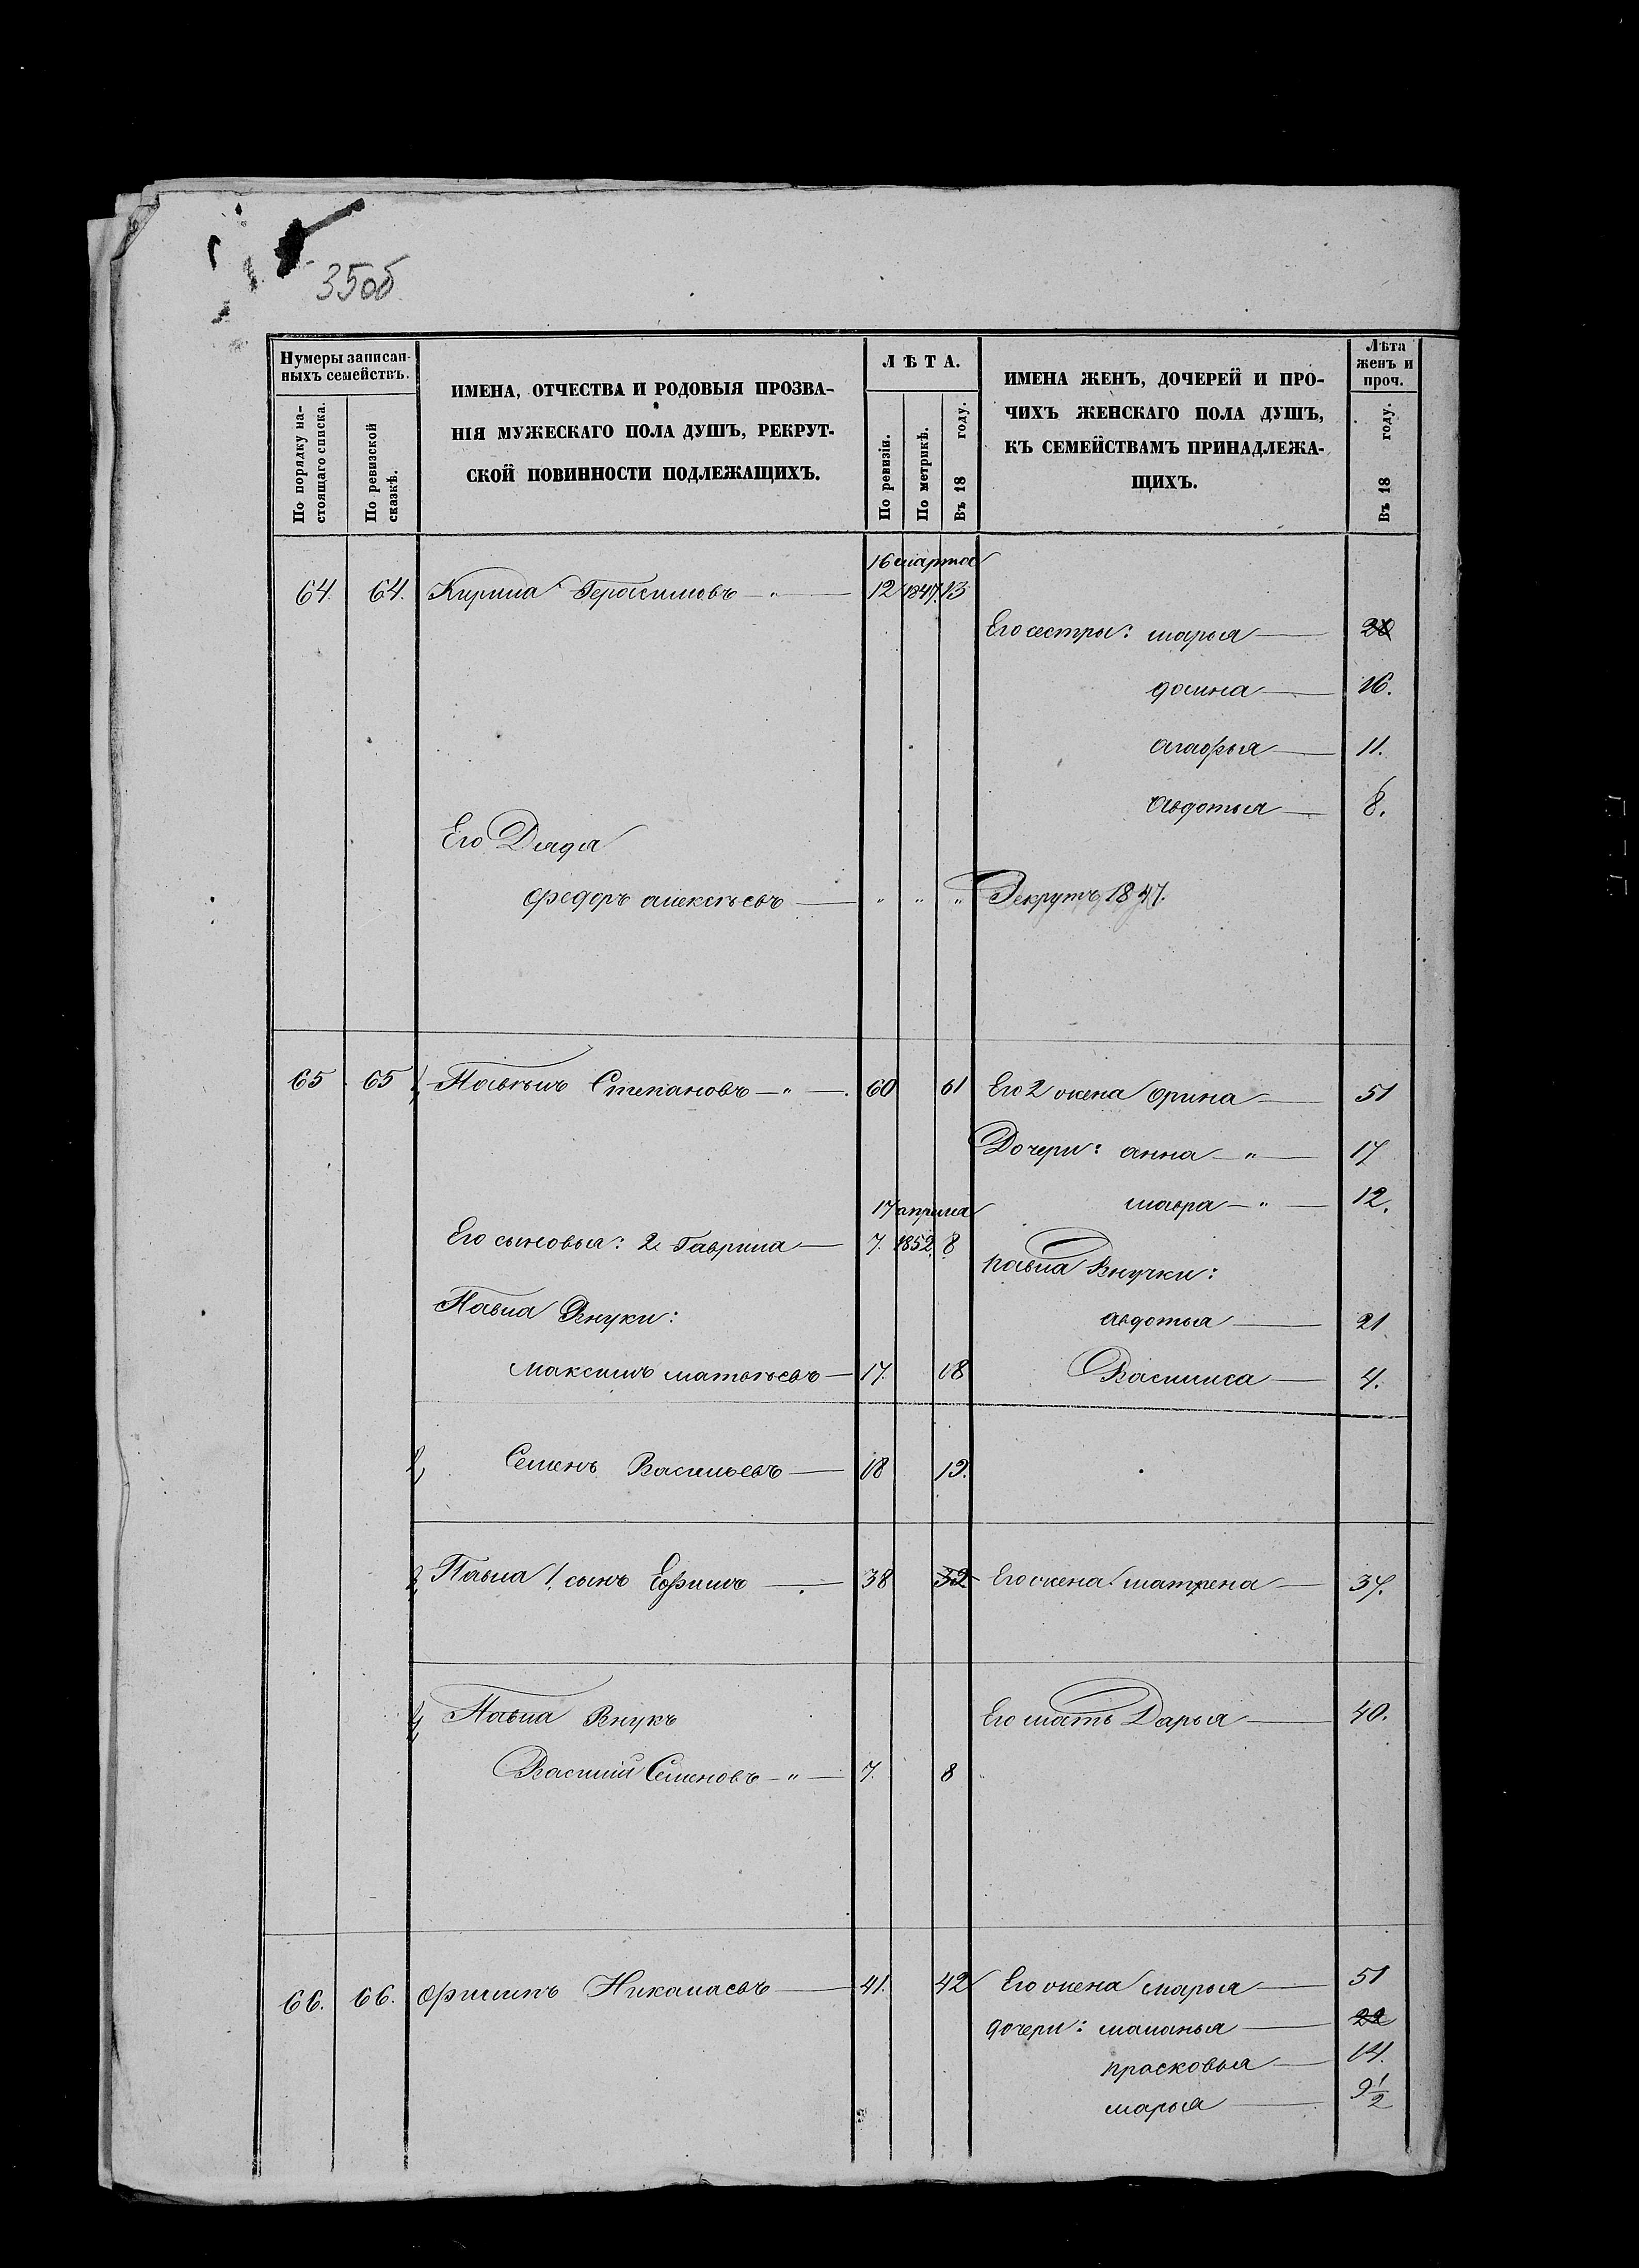 35об
Нумеры записан-
ныхъ семействъ.
По порядку на-
стоящаго списка.
По ревизской
сказкѣ.
ИМЕНА, ОТЧЕСТВА И РОДОВЫЯ ПРОЗВА-
НІЯ МУЖЕСКАГО ПОЛА ДУШЪ, РЕКРУТ-
СКОЙ ПОВИННОСТИ ПОДЛЕЖАЩИХЪ.
ЛѢТА.
По ревизіи.
По метрикѣ.
Въ 18 году.
ИМЕНА ЖЕНЪ, ДОЧЕРЕЙ И ПРО-
ЧИХЪ ЖЕНСКАГО ПОЛА ДУШЪ,
КЪ СЕМЕЙСТВАМЪ ПРИНАДЛЕЖА-
ЩИХЪ.
Лѣта
женъ и
проч.
Въ 18 году.
16 марта
64. 64. Кирила Герасимовъ — " — 12 1847. 13
Его сестры: марья —
домна — 16.
агафья — 11.
Авдотья — 8.
Его Дядя
федоръ алексѣевъ — " " " Рекрутъ 1847.
65 65 1, Павелъ Степановъ — " — 60 61 Его 2 жена Орина — 51
Дочери: анна — " — 17
мавра — " — 12.
17 апрѣля
Его сыновья: 2. Гаврила — 7. 1852. 8
павла Внучки:
Павла Внуки:
авдотья — 21
Максимъ матвѣевъ — 17. 18
Василиса — 4.
2, Семенъ Васильевъ — 18 19.
3, Павла 1. сынъ Ефимъ — 38 39 Его жена матрена — 37.
4, Павла Внукъ
Его мать Дарья — 40.
Василій Семеновъ — " — 7. 8
66. 66. Филипъ Никалаевъ — 41. 42 Его жена марья — 51
дочери: маланья — 22
прасковья — 14.
марья — 9 1/2